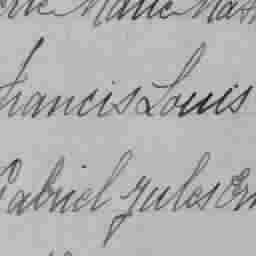 Marie
Francis Louis
Gabriel Jules